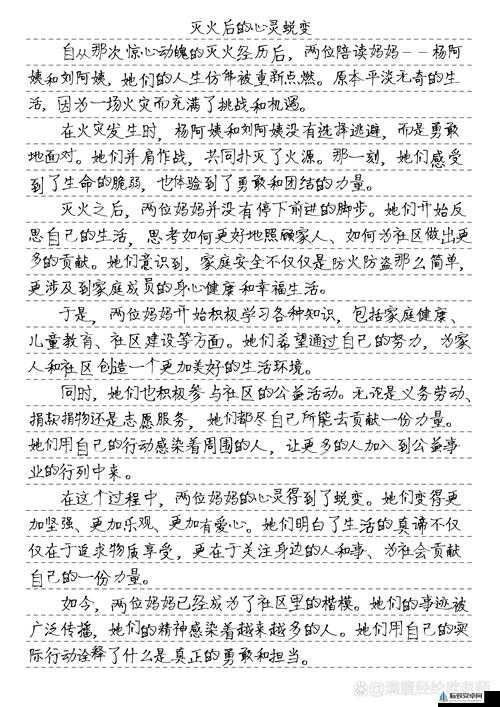 灭火后的心灵蜕变
自从那次惊心动魄的灭火经历后，两位陪读妈妈--杨阿
姨和刘阿姨，她们的人生仿佛被重新点燃。原本平淡无奇的生
活，因为一场火灾而充满了挑战和机遇。
在火灾发生时，杨阿姨和刘阿姨没有选择逃避，而是勇敢
地面对。她们并肩作战，共同扑灭了火源。那一刻，她们感受
到了生命的脆弱，也体验到了勇敢和团结的力量。
灭火之后，两位妈妈并没有停下前进的脚步。她们开始反
思自己的生活，思考如何更好地照顾家人、如何为社区做出更
多的贡献。她们意识到，家庭安全不仅仅是防火防盗那么简单，
更涉及到家庭成员的身心健康和幸福生活。
于是，两位妈妈开始积极学习各种知识，包括家庭健康、
儿童教育、社区建设等方面。她们希望通过自己的努力，为家
人和社区创造一个更加美好的生活环境。
同时，她们也积极参与社区的公益活动。无论是义务劳动、
捐款捐物还是志愿服务，她们都尽自己所能去贡献一份力量。
她们用自己的行动感染着周围的人，让更多的人加入到公益事
业的行列中来。
在这个过程中，两位妈妈的心灵得到了蜕变。她们变得更
加坚强、更加乐观、更加有爱心。她们明白了生活的真谛不仅
仅在于追求物质享受，更在于关注身边的人和事、为社会贡献
自己的一份力量。
如今，两位妈妈已经成为了社区里的楷模。她们的事迹被
广泛传播，她们的精神感染着越来越多的人。她们用自己的实
际行动诠释了什么是真正的勇敢和担当。